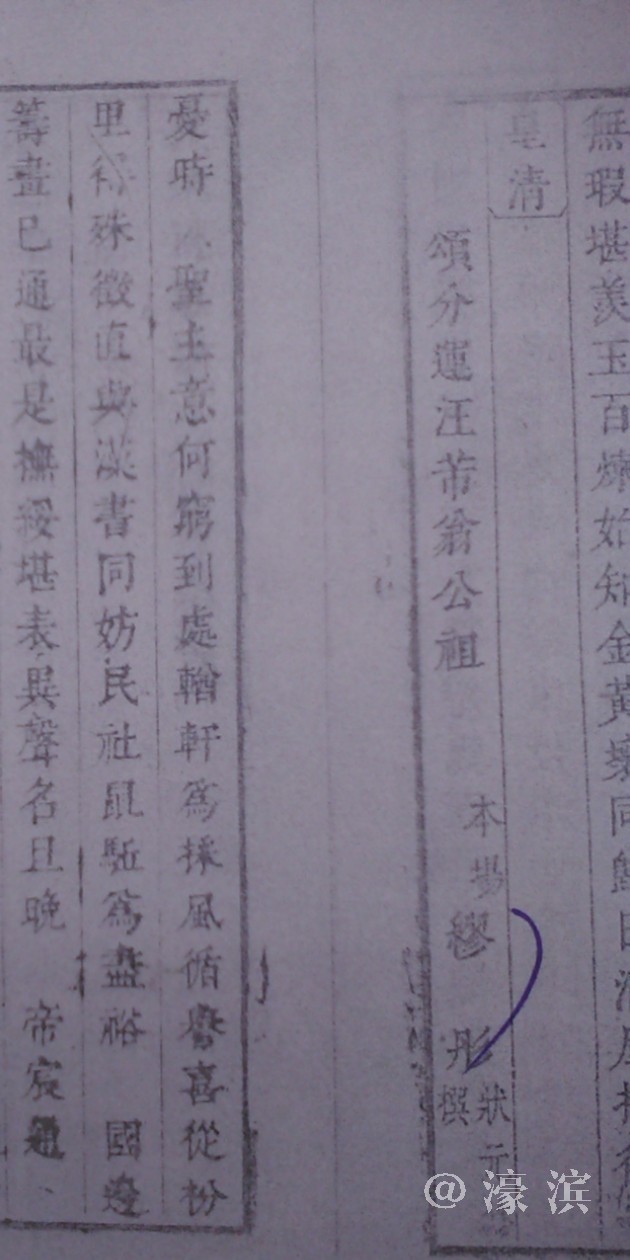 無瑕堪羡玉百煉始知金黃壤同歸日清
皂清
頌分運汪芾翁公祖 本場繆彤狀元撰
憂時 聖主意何窮到處輶軒為採風循譽喜從枌
里得殊徵直與漢書同妨民社鼠駈為盡裕 國邊
籌畫已通最是撫綏堪表異聲名且晚 帝宸通
@濠滨